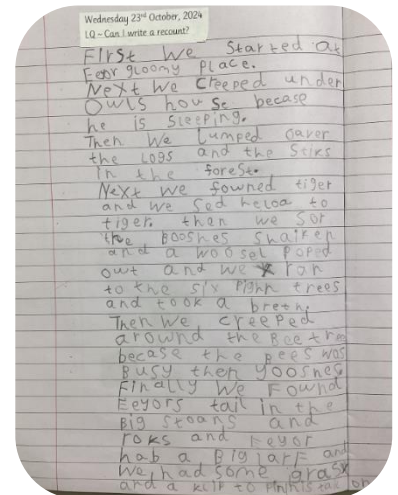 Wednesday 23rd October, 2024
LQ – Can I write a recount?
First we Started at
Eeor gloomy Place.
Next we creeped under
Owls house becase
he is sleeping.
Then we Lumped oaver
the Logs and the Sciks
in the forest.
Next we fowned tiger
and we sed heloa to
tiger. then we Sor
the booshes shaiken
and a woosel poped
out and we ran
to the six Pighn trees
and took a breth.
Then we creeped
arownd the Bee tree
becase the Bees was
Busy then yoosnes
Finally we fownd
Eeyors tail in the
Big stoans and
roks and Eeyor
hab a Big larf and
we had some grass
and a klip to Pin his tail on